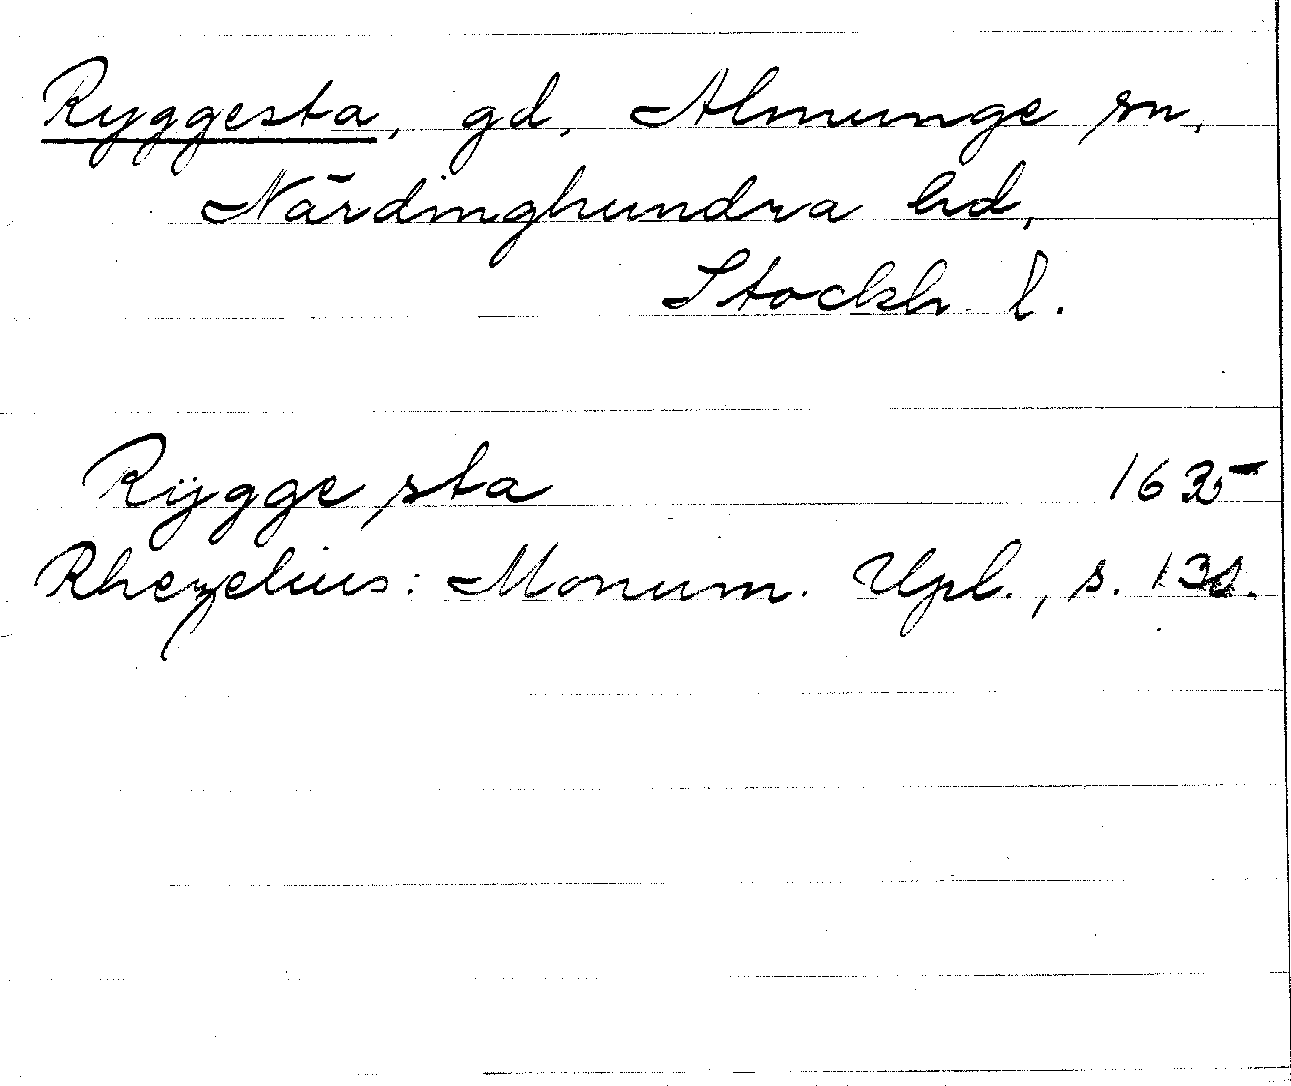 Ryggesta, gd, Almunge sn,
Närdinghundra hd,
Stockh. l.
Rÿgge sta 1635
Rhezelius: Monum. Upl., s. 130.